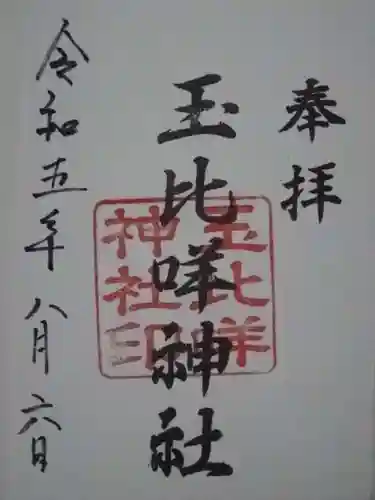 奉拝
玉比咩神社
玉比咩
神社印
令和五年八月六日